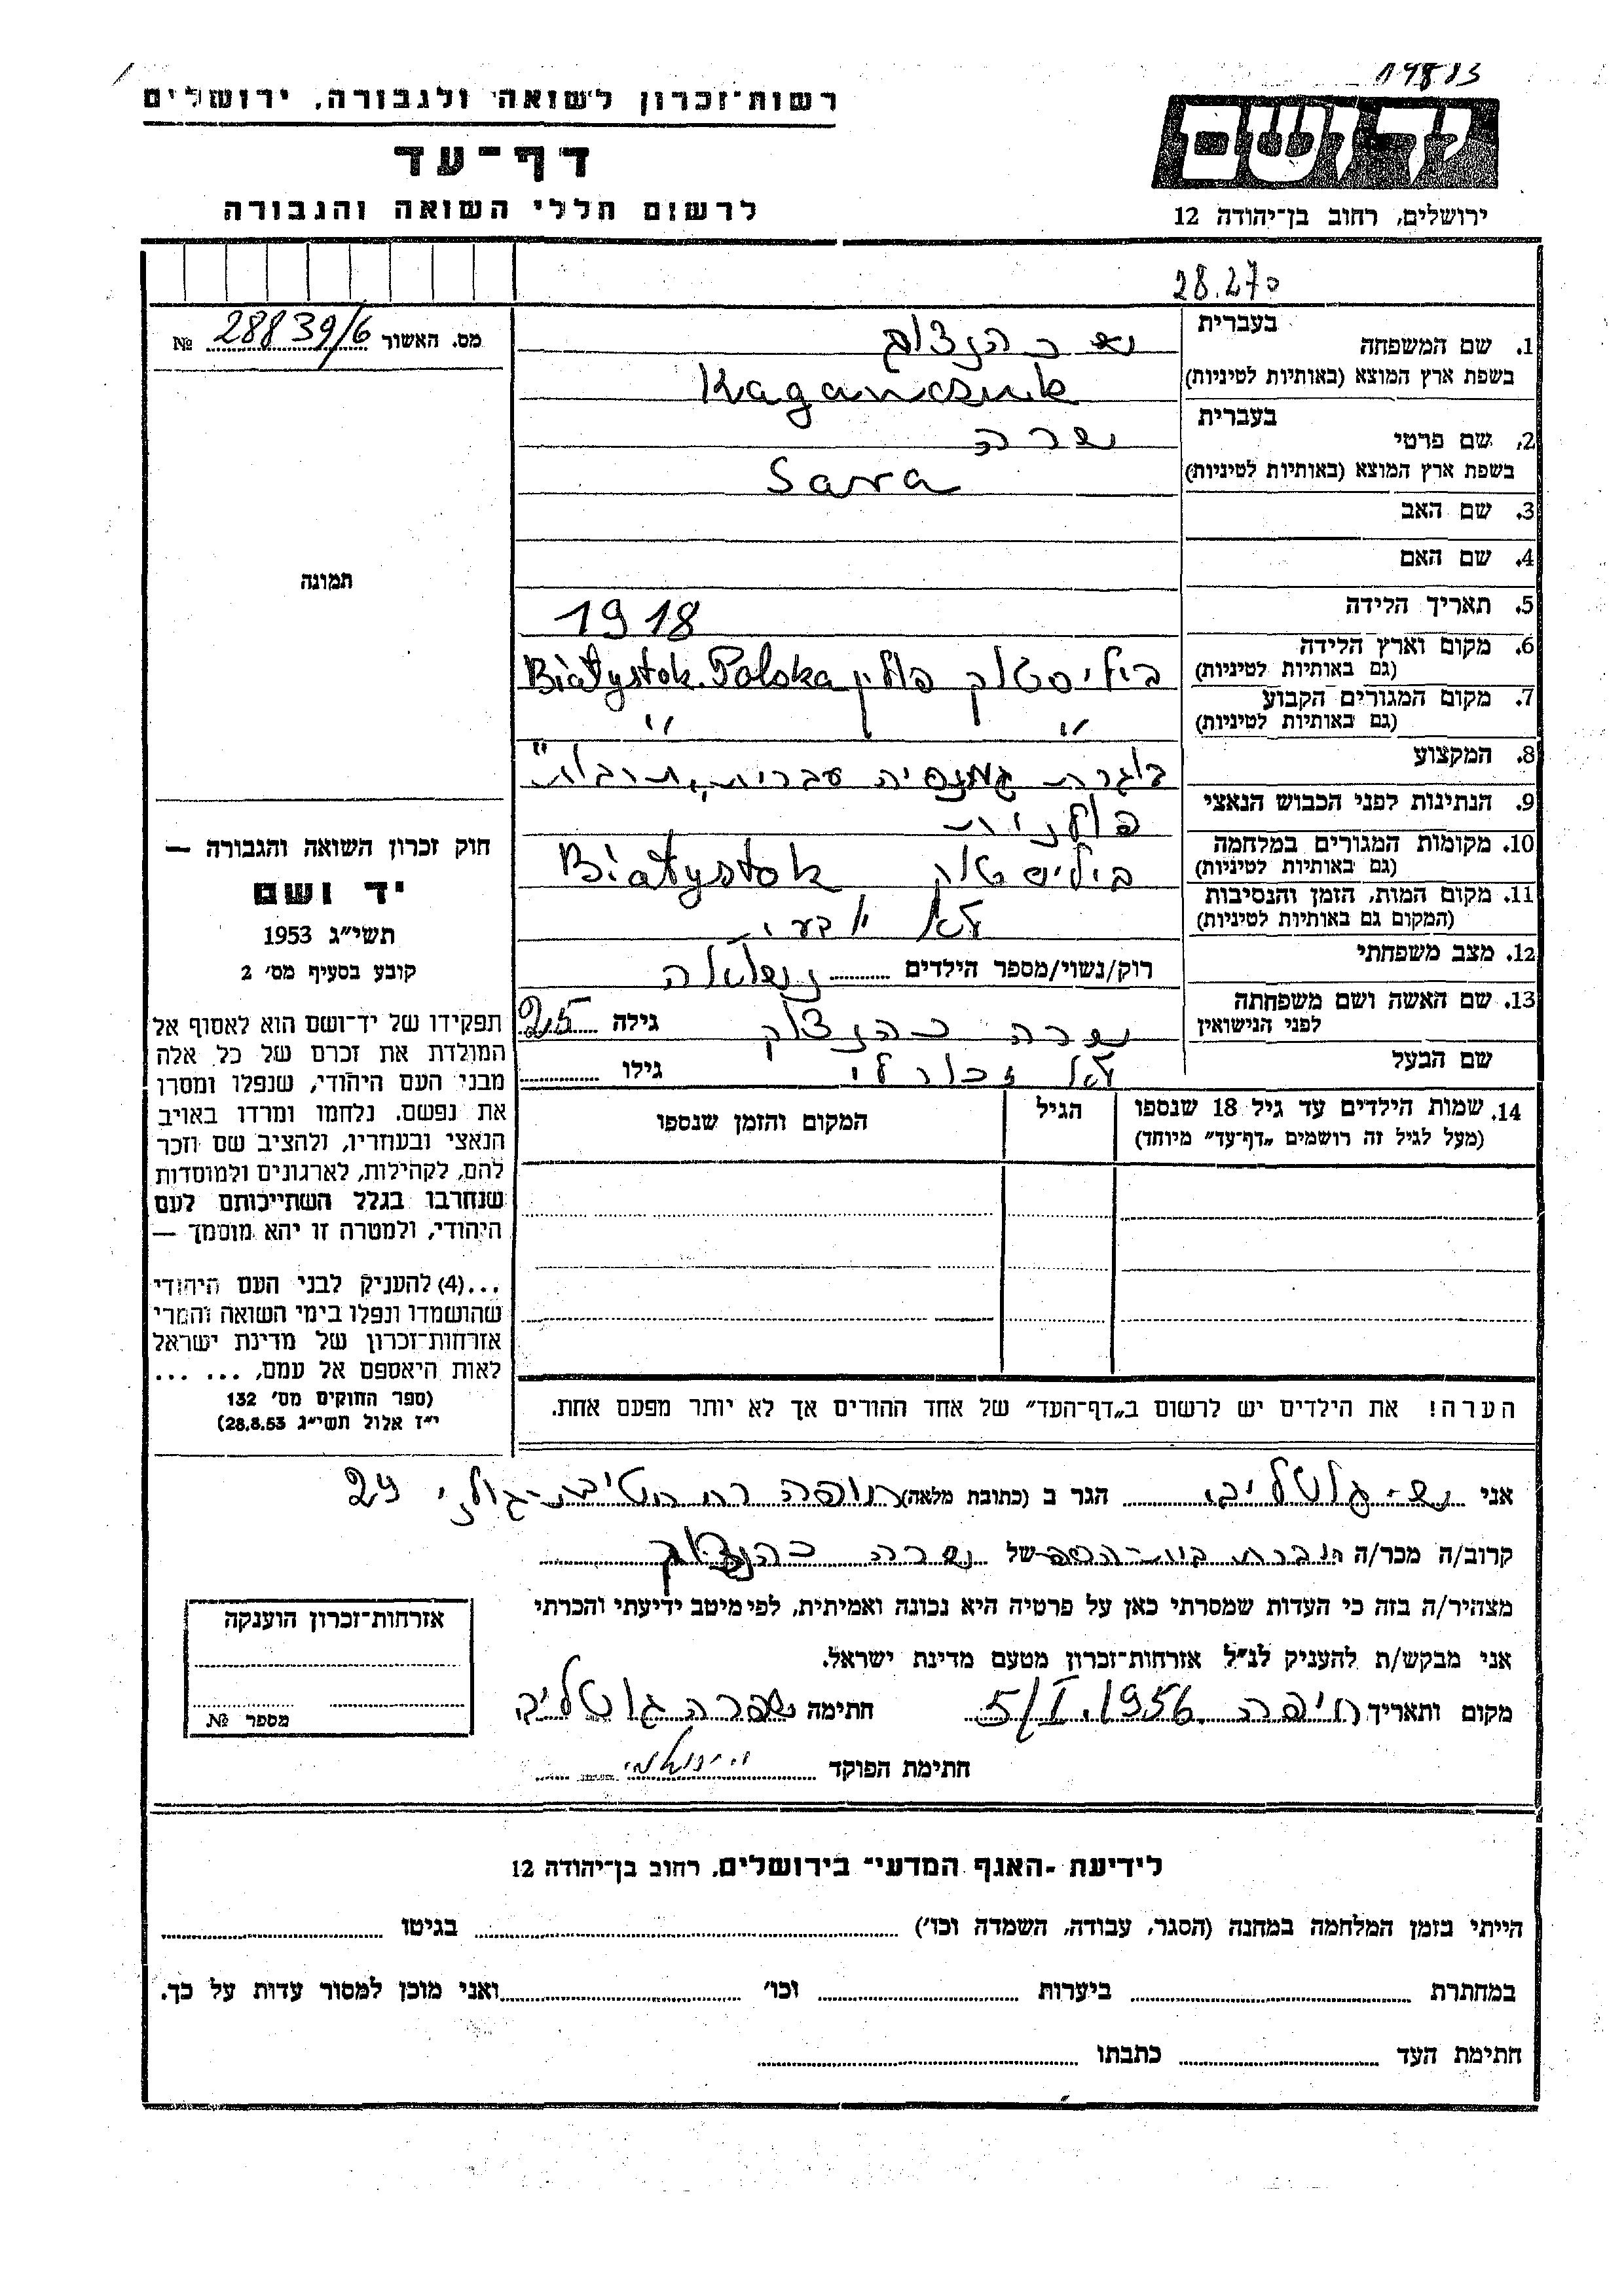 19813
רשות־זכרון לשואה ולגבורה, ירושלים
דף־עד
לרשום חללי השואה והגבורה
יד ושם
ירושלים, רחוב בן־יהודה 12
28.270
מס. האשור 28839/6 №
בעברית
1. שם המשפחה כהנצוק
בשפת ארץ המוצא (באותיות לטיניות) Kaganczuk
בעברית
2. שם פרטי שרה
בשפת ארץ המוצא (באותיות לטיניות) Sara
3. שם האב
4. שם האם
תמונה
5. תאריך הלידה 1918
6. מקום וארץ הלידה
(גם באותיות לטיניות) ביליסטוק פולין Białystok. Polska
7. מקום המגורים הקבוע
(גם באותיות לטיניות) " "
8. המקצוע בוגרת גמנסיה עברית „תרבות"
9. הנתינות לפני הכבוש הנאצי פולנית
10. מקומות המגורים במלחמה
(גם באותיות לטיניות) ביליסטוק Białystok
11. מקום המות, הזמן והנסיבות
(המקום גם באותיות לטיניות) לא ידעתי
12. מצב משפחתי רוק/נשוי/מספר הילדים
13. שם האשה ושם משפחתה
לפני הנישואין שרה כהנצוק גילה 25
שם הבעל לא זכור לי גילו
14. שמות הילדים עד גיל 18 שנספו
(מעל לגיל זה רושמים „דף־עד" מיוחד)
הגיל
המקום והזמן שנספו
הערה! את הילדים יש לרשום ב„דף־העד" של אחד ההורים אך לא יותר מפעם אחת.
חוק זכרון השואה והגבורה —
יד ושם
תשי"ג 1953
קובע בסעיף מס' 2
תפקידו של יד־ושם הוא לאסוף אל
המולדת את זכרם של כל אלה
מבני העם היהודי, שנפלו ומסרו
את נפשם. נלחמו ומרדו באויב
הנאצי ובעוזריו, ולהציב שם וזכר
להם, לקהילות, לארגונים ולמוסדות
שנחרבו בגלל השתייכותם לעם
היהודי, ולמטרה זו יהא מוסמך —
...(4) להעניק לבני העם היהודי
שהושמדו ונפלו בימי השואה והמרי
אזרחות־זכרון של מדינת ישראל
לאות היאספם אל עמם, ... ...
(ספר החוקים מס' 132
י"ז אלול תשי"ג 28.8.53)
אני גוטליב הגר ב (כתובת מלאה) חיפה 29
קרוב/ה מכר/ה חברת בית־הספר של שרה כהנצוק
מצהיר/ה בזה כי העדות שמסרתי כאן על פרטיה היא נכונה ואמיתית, לפי מיטב ידיעתי והכרתי
אני מבקש/ת להעניק לנ"ל אזרחות־זכרון מטעם מדינת ישראל.
מקום ותאריך חיפה 5/I.1956 חתימה שפרה גוטליב
חתימת הפוקד
אזרחות־זכרון הוענקה
מספר №
לידיעת ־האגף המדעי־ בירושלים, רחוב בן־יהודה 12
הייתי בזמן המלחמה במחנה (הסגר, עבודה, השמדה וכו') בגיטו
במחתרת ביערות וכו' ואני מוכן למסור עדות על כך.
חתימת העד כתבתו